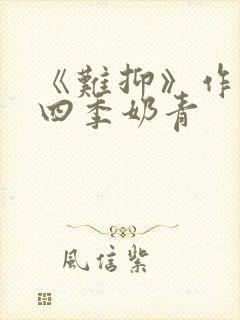 《難抑》作
四季奶青
風信紫